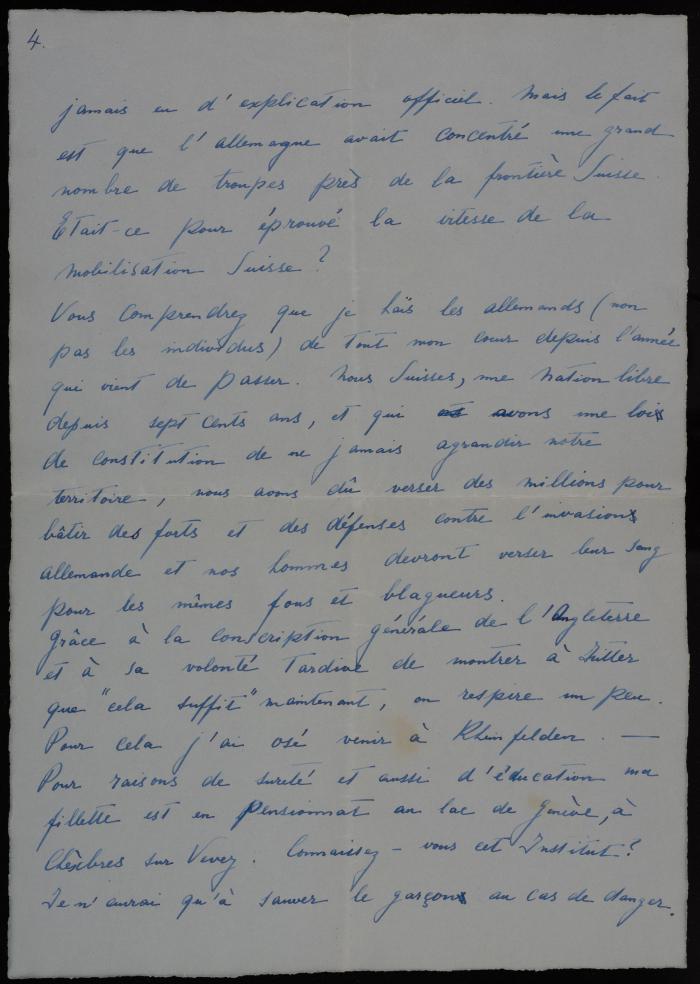 4.
jamais eu d'explication officiel. Mais le fait
est que l'allemagne avait concentré une grand
nombre de troupes près de la frontière Suisse.
Etait-ce pour éprouvé la vitesse de la
mobilisation Suisse?
Vous comprendrez que je haïs les allemands (non
pas les individus) de tout mon cœur depuis l'année
qui vient de passer. Nous Suisses, une Nation libre
depuis sept cents ans, et qui avons une loi
de constitution de ne jamais agrandir notre
territoire, nous avons dû verser des millions pour
bâtir des forts et des défenses contre l'invasion
allemande et nos hommes devront verser leur sang
pour les mêmes fous et blagueurs.
Grâce à la conscription générale de l'Angleterre
et à sa volonté tardive de montrer à Hitler
que "cela suffit" maintenant, on respire un peu.
Pour cela j'ai osé venir à Rheinfelden. —
Pour raisons de sureté et aussi d'éducation ma
fillette est en Pensionnat au lac de Genève, à
Chêxbres sur Vevey. Connaissez-vous cet Institut?
Je n'aurai qu'à sauver le garçon au cas de danger.